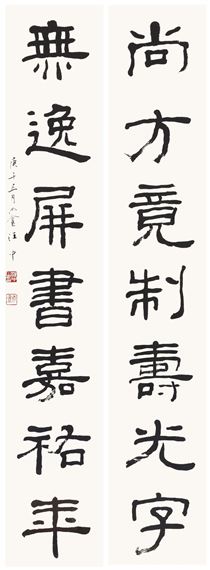 尚方竟制壽光字
無逸屏書嘉祐年
庚子三月 汪中